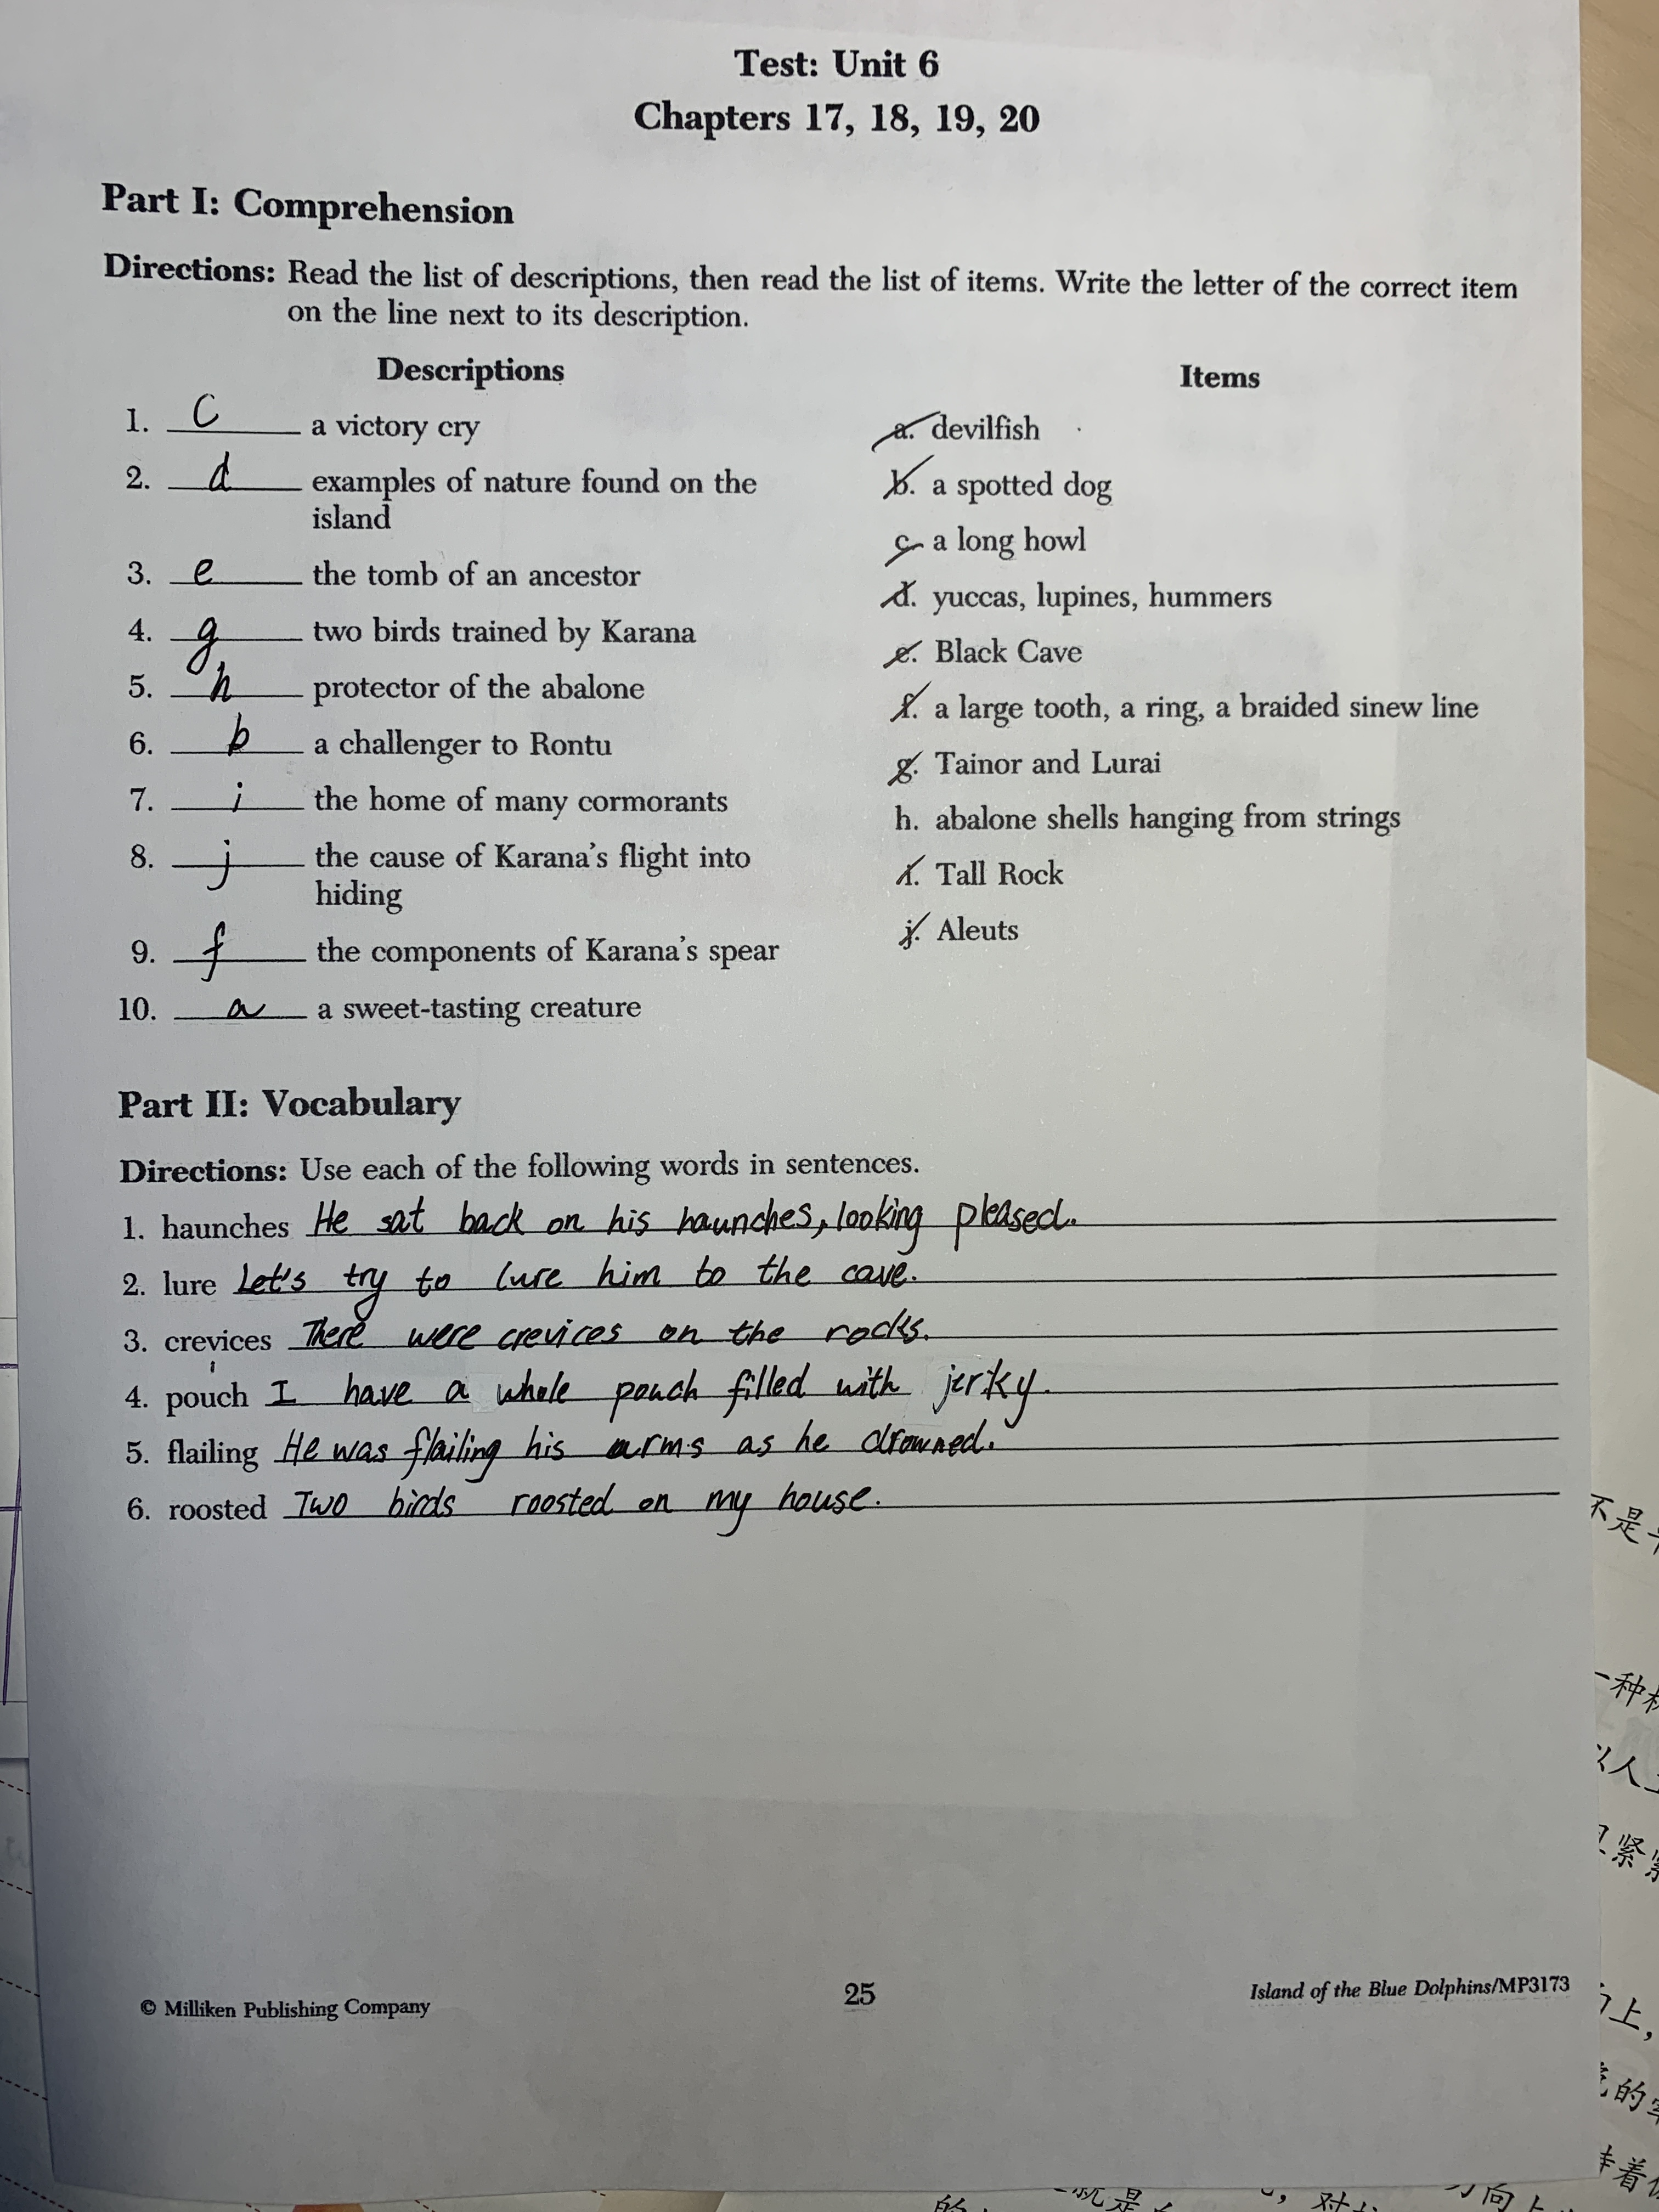 Test: Unit 6
Chapters 17, 18, 19, 20
Part I: Comprehension
Directions: Read the list of descriptions, then read the list of items. Write the letter of the correct item
on the line next to its description.
Descriptions
1. c a victory cry
2. d examples of nature found on the
island
3. e the tomb of an ancestor
4. g two birds trained by Karana
5. h protector of the abalone
6. b a challenger to Rontu
7. i the home of many cormorants
8. j the cause of Karana's flight into
hiding
9. f the components of Karana's spear
10. a a sweet-tasting creature
Items
a. devilfish
b. a spotted dog
c. a long howl
d. yuccas, lupines, hummers
e. Black Cave
f. a large tooth, a ring, a braided sinew line
g. Tainor and Lurai
h. abalone shells hanging from strings
i. Tall Rock
j. Aleuts
Part II: Vocabulary
Directions: Use each of the following words in sentences.
1. haunches He sat back on his haunches, looking pleased.
2. lure Let's try to lure him to the cave.
3. crevices There were crevices on the rocks.
4. pouch I have a whole pouch filled with jerky.
5. flailing He was flailing his arms as he drowned.
6. roosted Two birds roosted on my house.
© Milliken Publishing Company
25
Island of the Blue Dolphins/MP3173
不是
一种
以人
紧
上，
的
着
就是
，对
向上
的